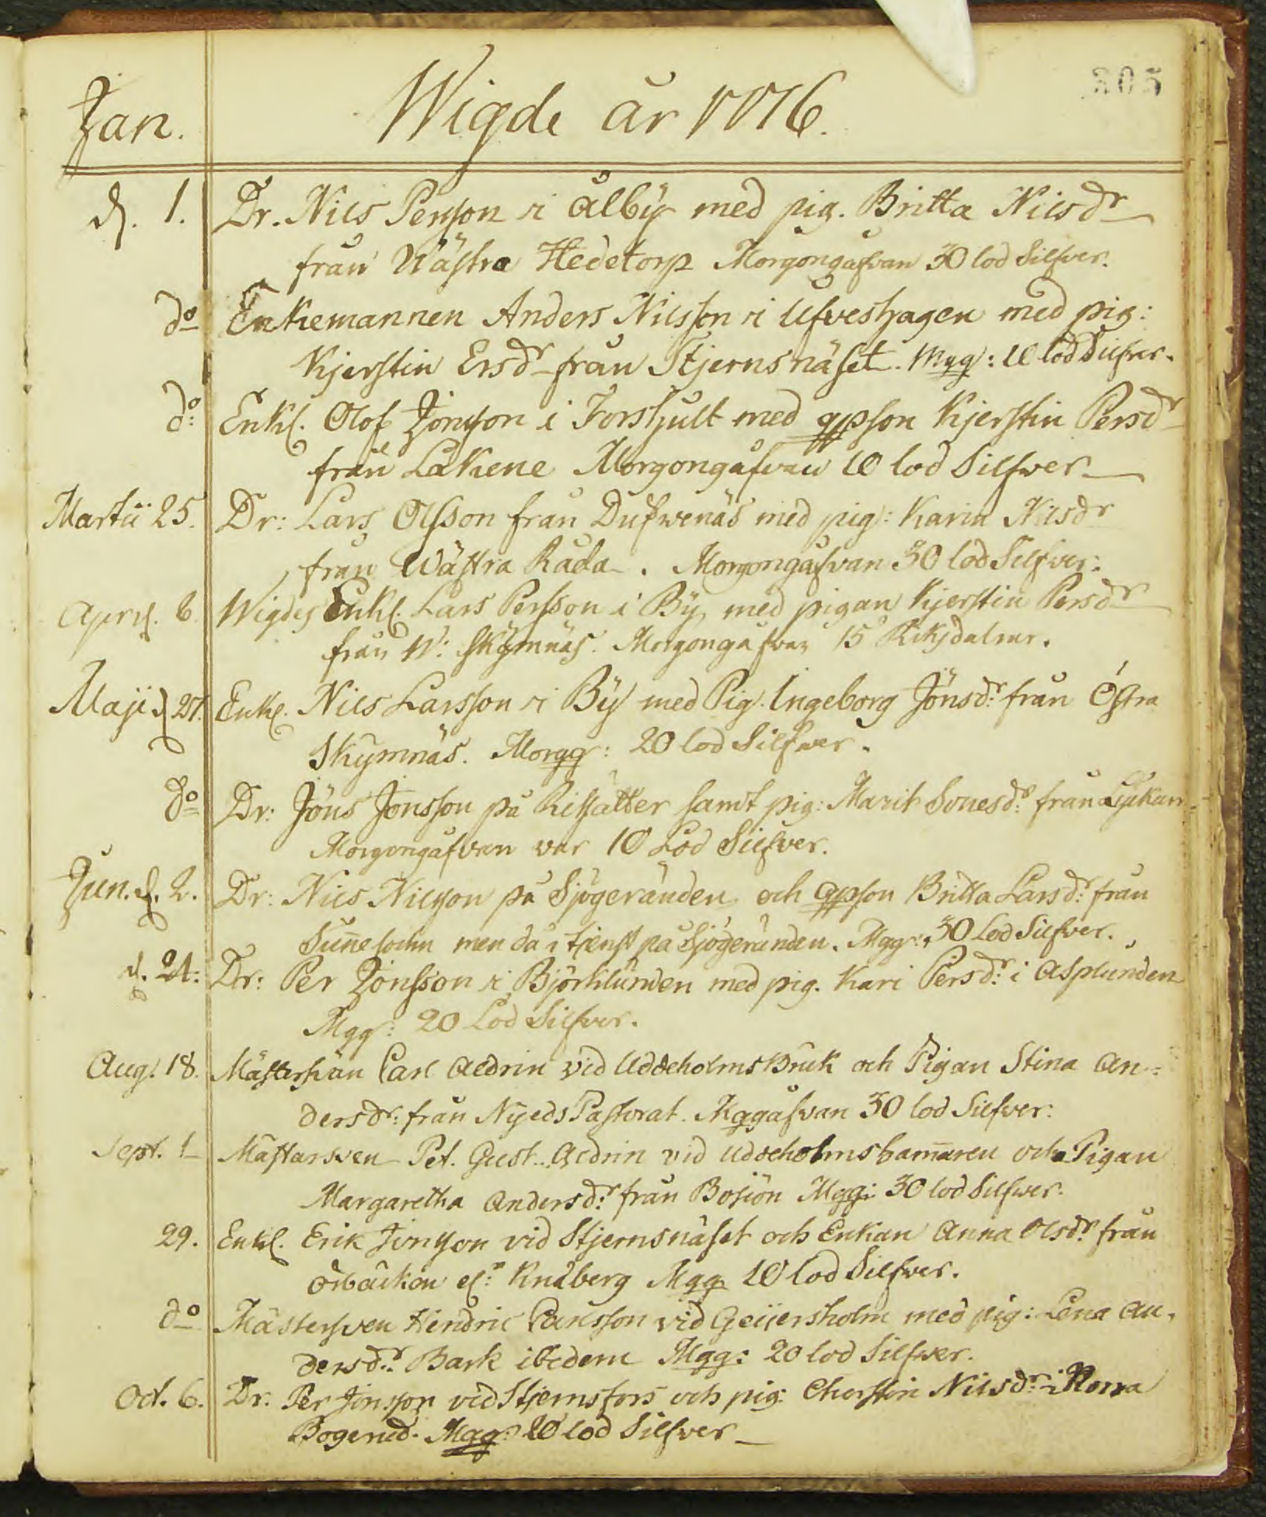 305
Jan. Wigde år 1776.
d. 1. Dr. Nils Persson i Ålby med pig. Britta Nilsdr
från Wästra Hedetorp Morgongåfvan 30 lod Silfver.
do Enkemannen Anders Nilsson i Ufveshagen med pig:
Kjerstin Ersdr från Stjernsnäset. Mgg: 10 lod Silfver.
do Enkl. Olof Jönsson i Forshult med qpson Kjerstin Persdr
från Lakene Morgongåfvan 10 lod Silfver
Martii 25. Dr: Lars Olsson från Dufwenäs med pig: Karin Nilsdr
från Wästra Råda. Morgongåfvan 30 lod Silfver:
April. 6. Wigdes Enkl. Lars Persson i By, med pigan Kjerstin Persdr
från W: Skymnäs. Morgongåfvan 15 Riksdalrar.
Maji d 27. Enkl. Nils Larsson i By med Pig. Ingeborg Jönsdr. från Östra
Skymnäs. Morgg: 20 lod Silfwer.
do Dr: Jöns Jonsson på samt pig: Marit Sonesdr. från
Morgongåfvan var 10 Lod Silfver.
Jun. d. 2. Dr: Nils Nilsson på Sjögeränden och qpson Britta Larsdr. från
Sunne sochn men då i tjenst på Sjögeränden. Mgg: 30 Lod Silfver.
d. 24: Dr: Per Jönsson i Björklunden med pig. Kari Persdr. i Asplunden
Mgg: 20 Lod Silfver.
Aug. 18. Mästersvän Carl Aedrin vid Uddeholms Bruk och Pigan Stina An-
dersdr: från Nyeds Pastorat. Mggåfvan 30 lod Silfver.
Sept. 1 Mästarsven Pet. Gust. Aedrin vid Uddeholmsham̄aren och Pigan
Margaretha Andersdr. från Bosjön Mgg: 30 lod Silfwer.
29. Enkl. Erik Jönsson vid Stjernsnäset och Enkan Anna Olsdr. från
el:r Knåberg Mgg 10 lod Silfver.
do Mästersven Hendric Carlsson vid Geijersholm med pig: Lena An-
dersdr. Bark ibidem Mgg: 20 lod Silfwer.
Oct. 6. Dr. Per Jönsson vid Stjernsfors och pig. Cherstin Nilsdr. i Norra
Bogerud. Mgg: 20 lod Silfver